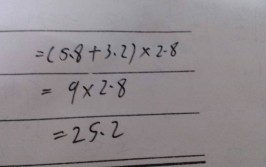 =(5.8+3.2)×2.8
= 9×2.8
=25.2